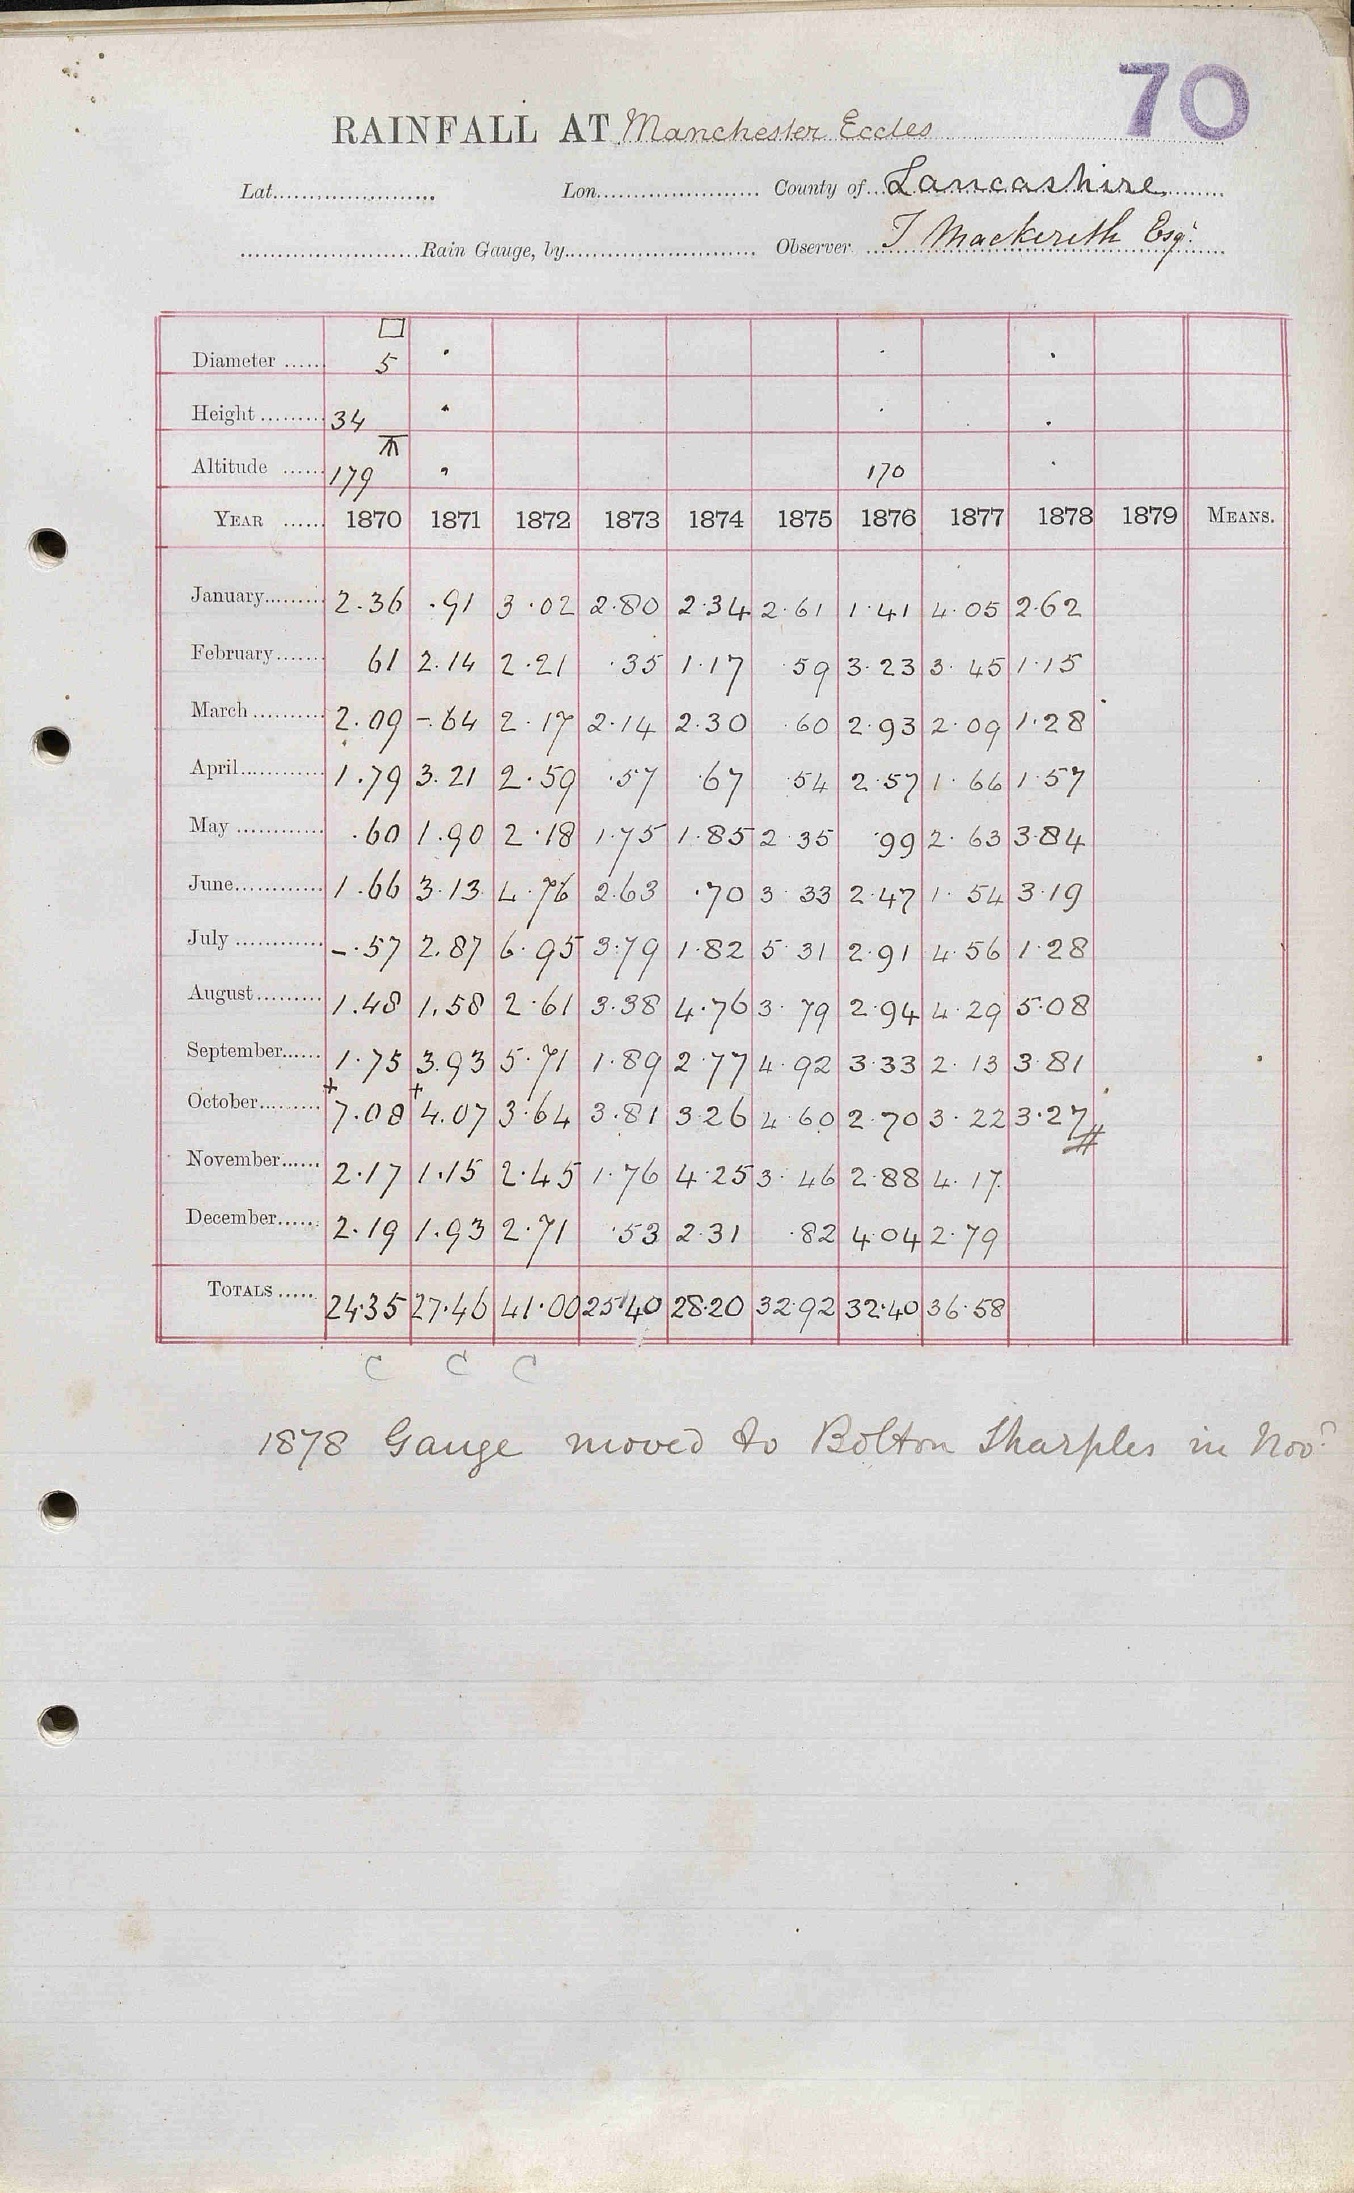 70
RAINFALL AT Manchester Eccles
Lat. Lon. County of Lancashire
Rain Gauge, by Observer T Mackereth Esqr
Diameter 5
Height 34
Altitude 179 170
YEAR 1870 1871 1872 1873 1874 1875 1876 1877 1878 1879 MEANS.
January 2.36 .91 3.02 2.80 2.34 2.61 1.41 4.05 2.62
February 61 2.14 2.21 .35 1.17 .59 3.23 3.45 1.15
March 2.09 -.64 2.17 2.14 2.30 .60 2.93 2.09 1.28
April 1.79 3.21 2.59 .57 .67 .54 2.57 1.66 1.57
May .60 1.90 2.18 1.75 1.85 2.35 .99 2.63 3.84
June 1.66 3.13 4.76 2.63 .70 3.33 2.47 1.54 3.19
July -.57 2.87 6.95 3.79 1.82 5.31 2.91 4.56 1.28
August 1.48 1.58 2.61 3.38 4.76 3.79 2.94 4.29 5.08
September 1.75 3.93 5.71 1.89 2.77 4.92 3.33 2.13 3.81
October +7.08 +4.07 3.64 3.81 3.26 4.60 2.70 3.22 3.27
November 2.17 1.15 2.45 1.76 4.25 3.46 2.88 4.17
December 2.19 1.93 2.71 .53 2.31 .82 4.04 2.79
TOTALS 24.35 27.46 41.00 25.40 28.20 32.92 32.40 36.58
C C C
1878 Gauge moved to Bolton Sharples in Novr